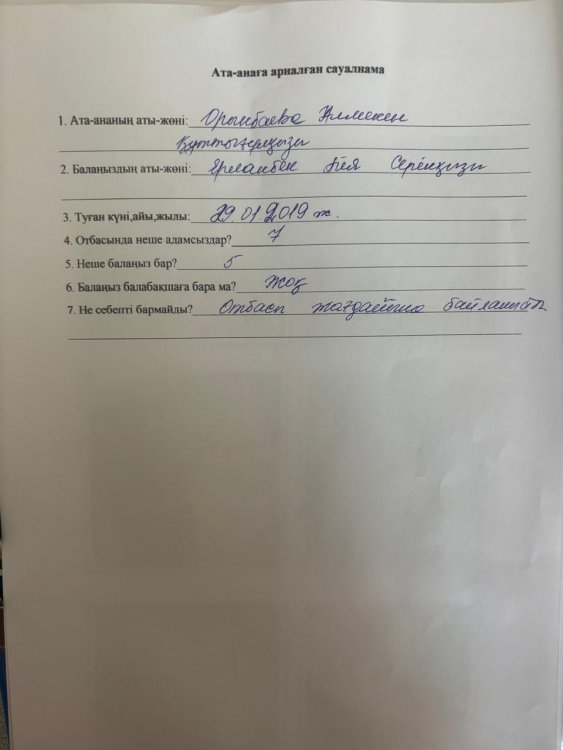 Ата-анаға арналған сауалнама
1. Ата-ананың аты-жөні: Орынбаева
2. Балаңыздың аты-жөні: Ерланбек Серікқызы
3. Туған күні,айы,жылы: 29.01.2019 ж.
4. Отбасында неше адамсыздар? 7
5. Неше балаңыз бар? 5
6. Балаңыз балабақшаға бара ма? жоқ
7. Не себепті бармайды? Отбасы жағдайына байланысты